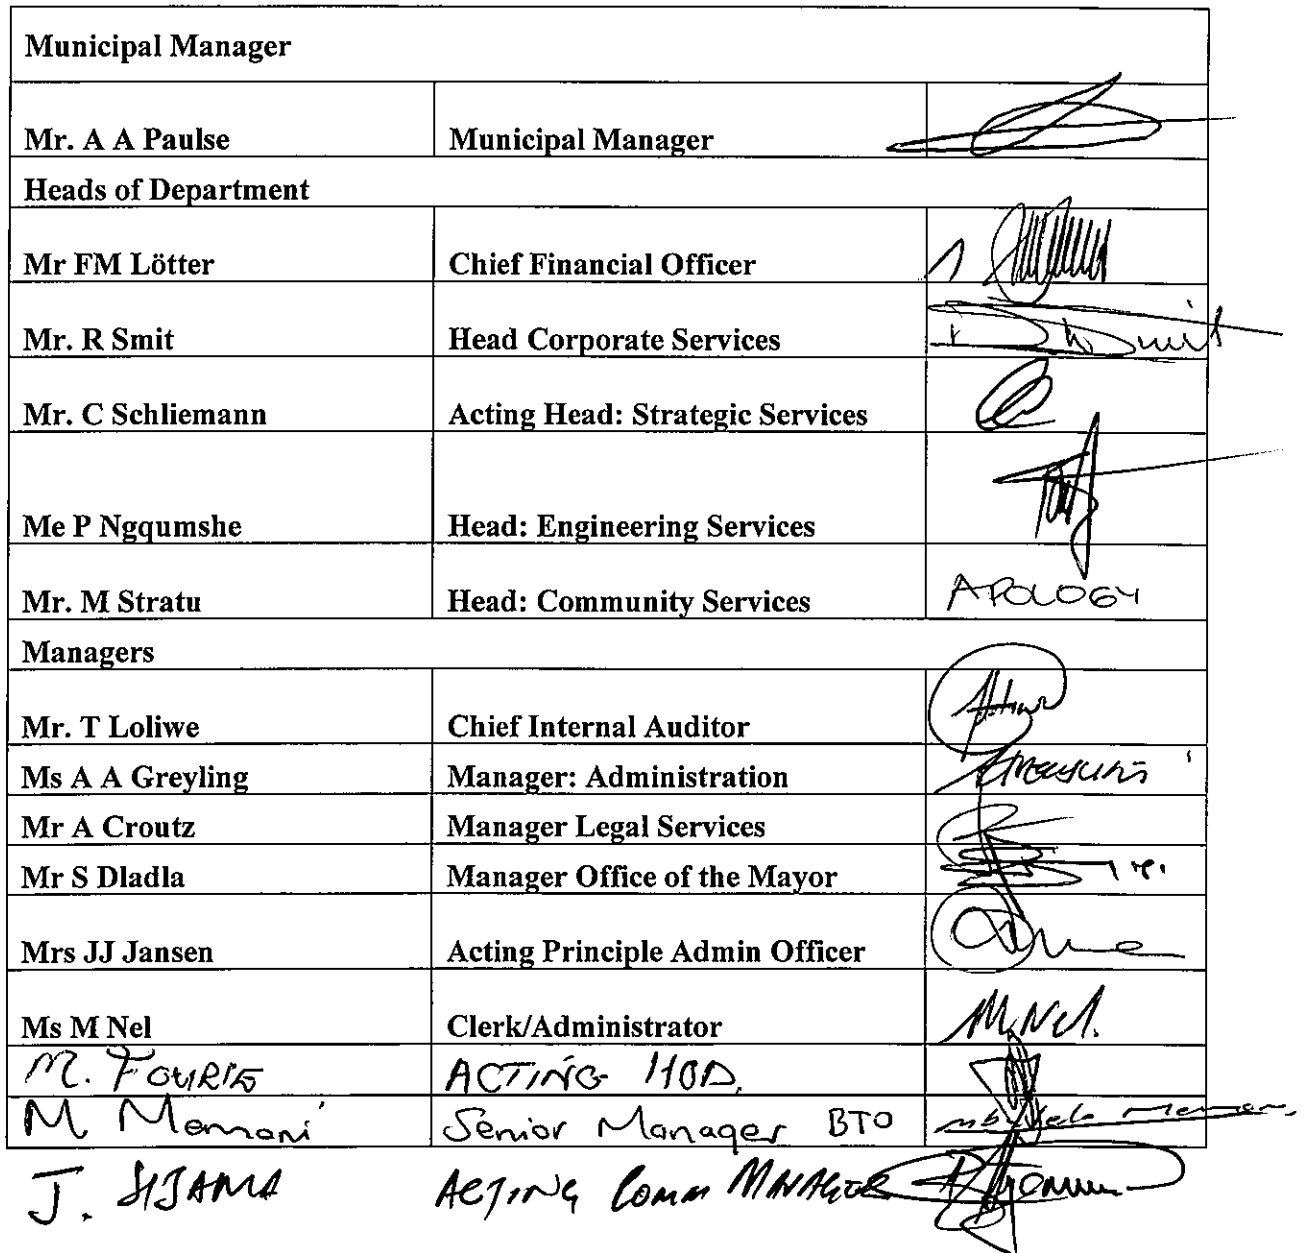 Municipal Manager
Mr. A A Paulse Municipal Manager
Heads of Department
Mr FM Lötter Chief Financial Officer
Mr. R Smit Head Corporate Services
Mr. C Schliemann Acting Head: Strategic Services
Me P Ngqumshe Head: Engineering Services
Mr. M Stratu Head: Community Services APOLOGY
Managers
Mr. T Loliwe Chief Internal Auditor
Ms A A Greyling Manager: Administration
Mr A Croutz Manager Legal Services
Mr S Dladla Manager Office of the Mayor
Mrs JJ Jansen Acting Principle Admin Officer
Ms M Nel Clerk/Administrator M. Nel.
M. FOURIE ACTING HOD.
M Memani Senior Manager BTO
J. SIJAMA ACTING Comm MANAGER